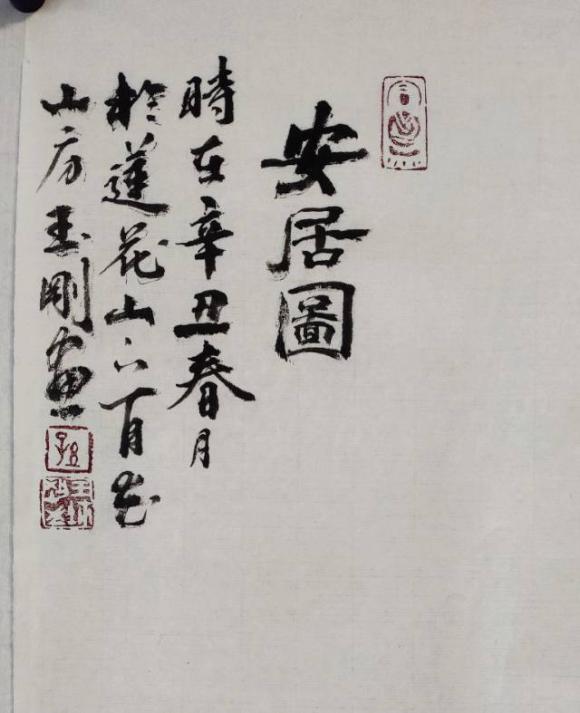 安居圖
時在辛丑春月
於蓮花山下百
山房玉刚画